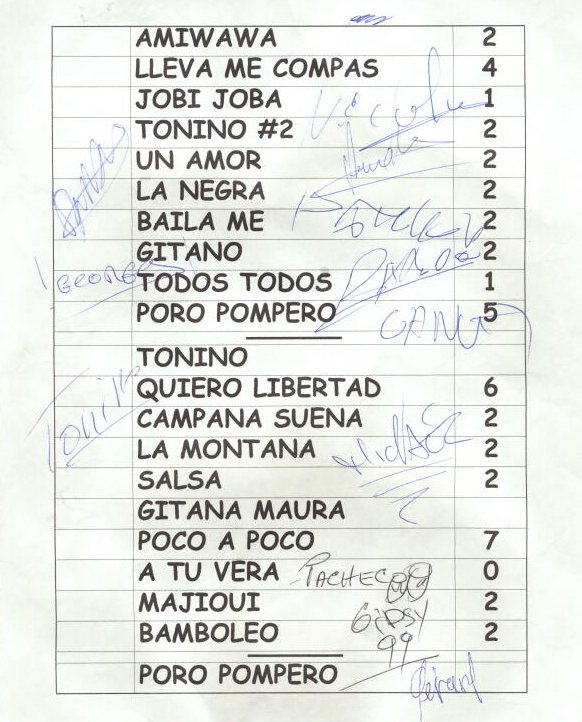 AMIWAWA 2
LLEVA ME COMPAS 4
JOBI JOBA 1
TONINO #2 2
UN AMOR 2
LA NEGRA 2
BAILA ME 2
GITANO 2
GEORGES
TODOS TODOS 1
PORO POMPERO 5
TONINO
QUIERO LIBERTAD 6
CAMPANA SUENA 2
LA MONTANA 2
SALSA 2
GITANA MAURA
POCO A POCO 7
A TU VERA 0
PACHECO
MAJIOUI 2
GIPSY
BAMBOLEO 2
99
PORO POMPERO
Gérard